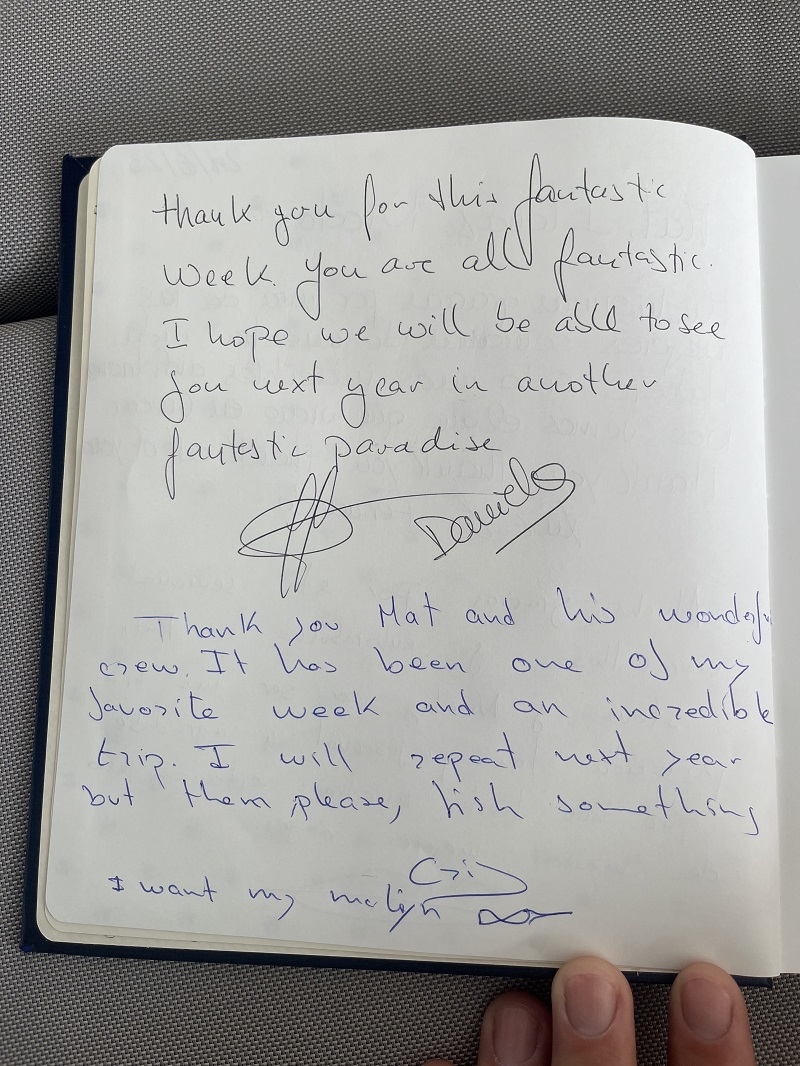 thank you for this fantastic
week. you are all fantastic.
I hope we will be able to see
you next year in another
fantastic paradise
Thank you Mat and his wonderfu
crew. It has been one of my
favorite week and an incredible
trip. I will repeat next year
but them please, fish something
Cris
I want my